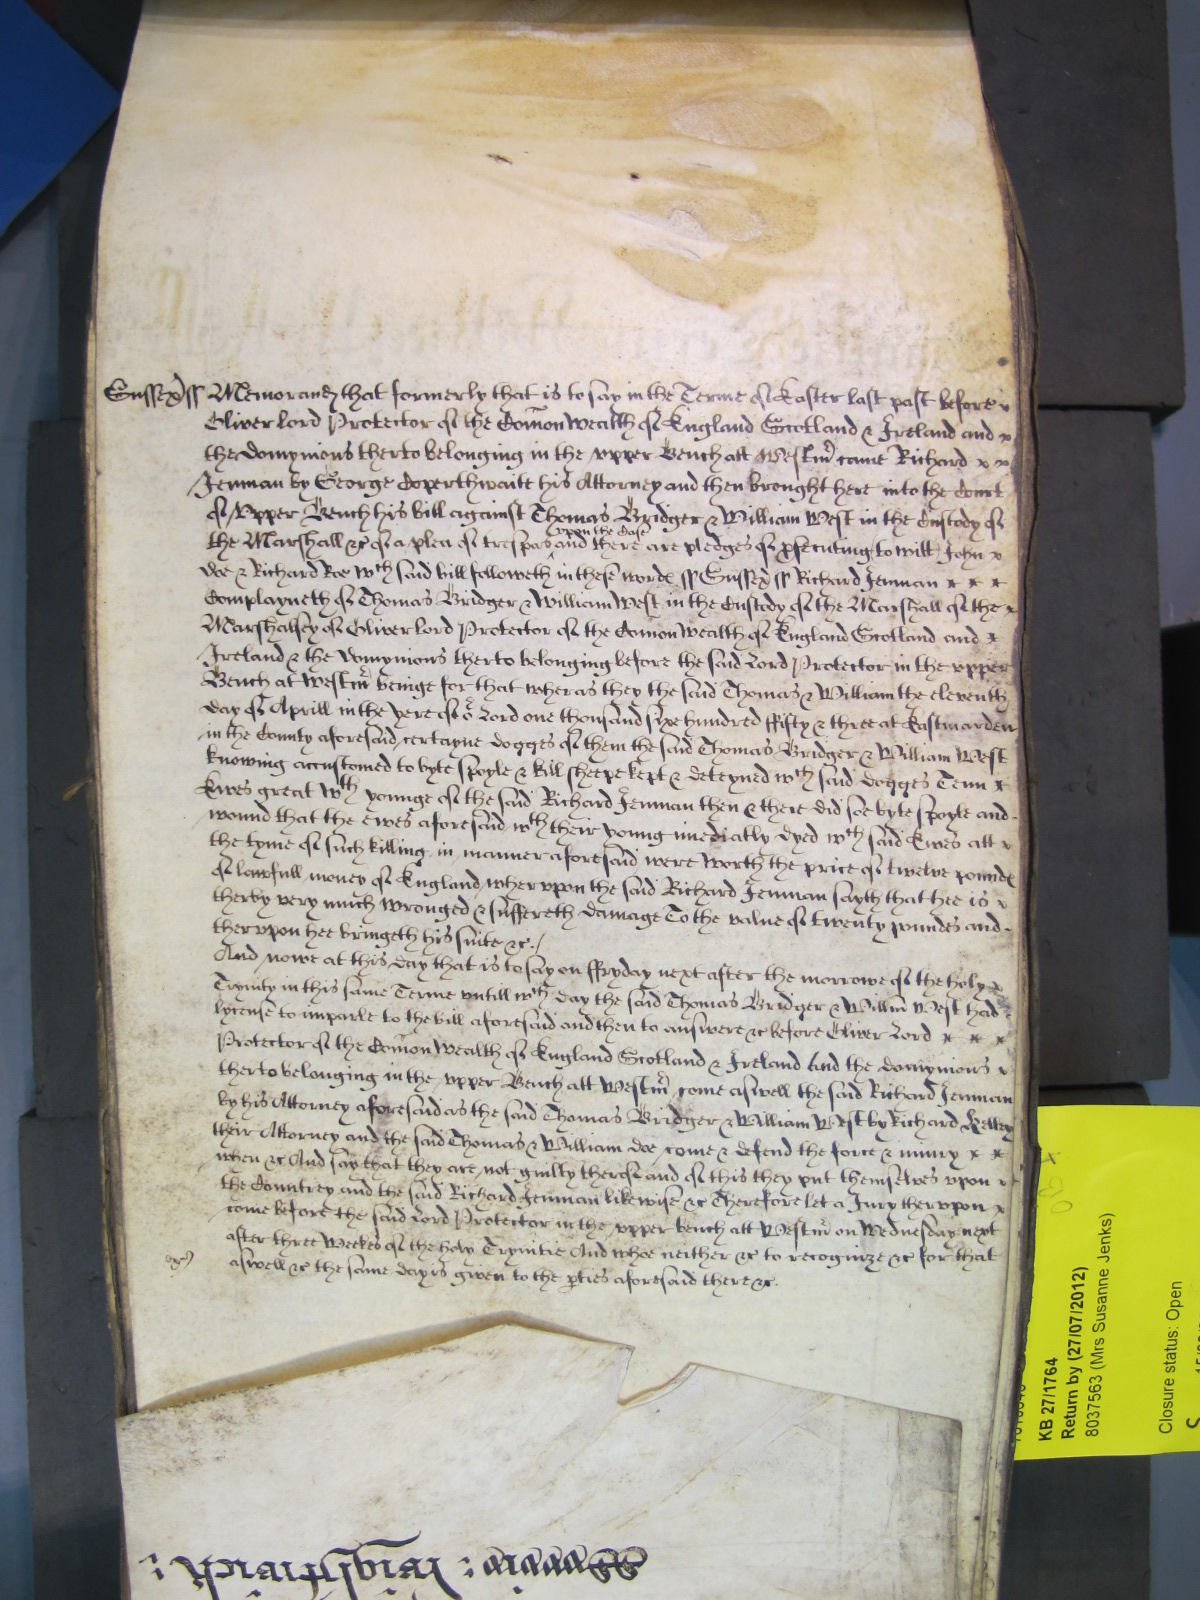 Sussex ss Memorand that formerly that is to say in the Terme of Easter last past before
Oliver Lord Protector of the Comon Wealth of England Scotland & Ireland and
the domynions therto belonging in the upper Bench att Westm came Richard
Jenman by George Coperthwaite his Attorney and then brought here into the Court
of Upper Bench his bill against Thomas Bridger & William West in the Custody of
upon the Case
the Marshall &c of a plea of trespas and there are pledges of psecuting to witt John
Doe & Richard Roe wth said bill followeth in these words ss Sussex ss Richard Jenman
Complayneth of Thomas Bridger & William West in the Custody of the Marshall of the
Marshalsey of Oliver Lord Protector of the Comon Wealth of England Scotland and
Ireland & the domynions therto belonging before the said Lord Protector in the upper
Bench at Westm beinge for that wheras they the said Thomas & William the eleventh
day of Aprill in the yere of or Lord one thousand sixe hundred ffifty & three at Eastmarden
in the County aforesaid certayne dogges of them the said Thomas Bridger & William West
knowing accustomed to byte spoyle & kill sheepe kept & deteyned wth said dogges Tenn
Ewes great wth younge of the said Richard Jenman then & there did soe byte spoyle and
wound that the Ewes aforesaid wth their young imediatly dyed wth said Ewes att
the tyme of such killing in manner aforesaid were worth the price of twelve pounds
of lawfull money of England wherupon the said Richard Jenman sayth that hee is
therby very much wronged & suffereth damage To the value of twenty poundes and
therupon hee bringeth his suite &c.
And nowe at this day that is to say on ffryday next after the morrowe of the holy
Trynity in this same Terme untill wch day the said Thomas Bridger & Willm West had
lycense to imparle to the bill aforesaid and then to answere &c before Oliver Lord
Protector of the Comon Wealth of England Scotland & Ireland And the domynions
therto belonging in the upper Bench att Westm come aswell the said Richard Jenman
by his Attorney aforesaid as the said Thomas Bridger & William West by Richard Kelley
their Attorney and the said Thomas & William doe come & defend the force & iniury
when &c And say that they are not guilty therof and of this they put themselves upon
the Countrey and the said Richard Jenman likewise &c Therefore let a Jury therupon
come before the said Lord Protector in the upper bench att Westm on Wednesday next
after three Weekes of the holy Trynitie And whoe neither &c to recognize &c for that
aswell &c the same day is given to the pties aforesaid there &c.
KB 27/1764
Return by (27/07/2012)
8037563 (Mrs Susanne Jenks)
Closure status: Open